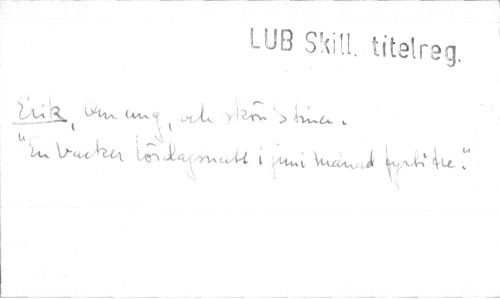 LUB Skill. titelreg.
Erik, den ung, och skön Stina.
"En vacker lördagsnatt i juni månad fyrti tre."